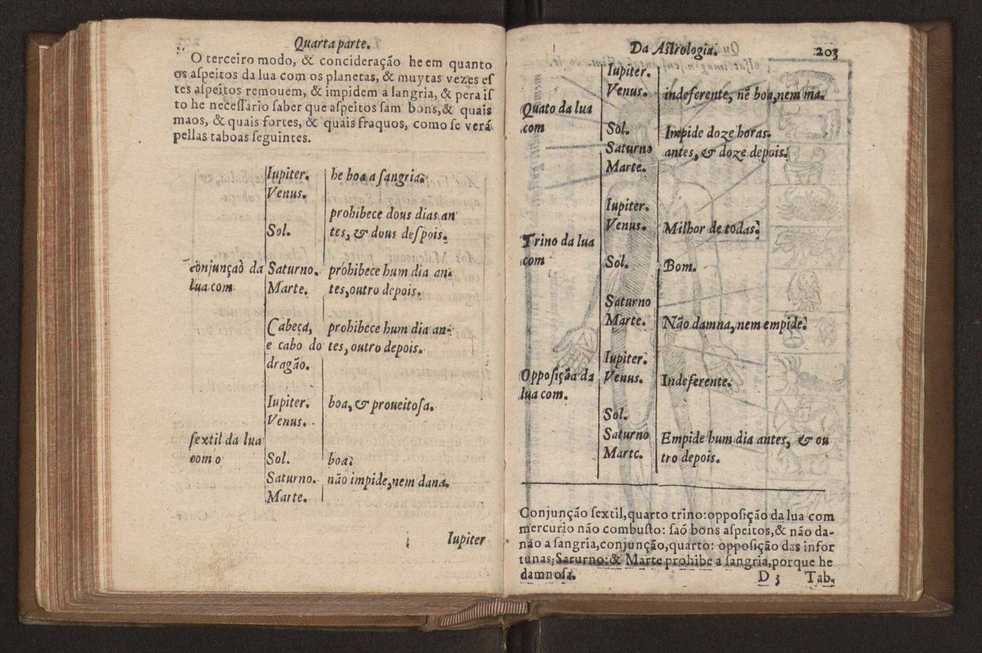 Quarta parte.
O terceiro modo, & concideração he em quanto
os aſpeitos da lua com os planetas, & muytas vezes eſ
tes aſpeitos remouem, & impidem a ſangria, & pera iſ
to he neceſſario ſaber que aſpeitos ſam bons,& quais
maos, & quais fortes, & quais fraquos, como ſe verá
pellas taboas ſeguintes.
Iupiter. he boa a ſangria.
Venus.
prohibece dous dias an
Sol. tes, & dous deſpois.
conjunçaõ da Saturno. prohibece hum dia an-
lua com Marte. tes, outro depois.
Cabeça, prohibece hum dia an-
e cabo do tes, outro depois.
dragão.
Iupiter. boa, & proueitoſa.
Venus.
ſextil da lua
com o Sol. boa.
Saturno. não impide, nem dana.
Marte.
Iupiter
Da Aſtrologia. 203
Iupiter.
Venus. indeferente, nẽ boa, nem ma.
Quato da lua
com Sol. Impide doze horas
Saturno antes, & doze depois.
Marte.
Iupiter.
Venus. Milhor de todas.
Trino da lua
com Sol. Bom.
Saturno
Marte. Não damna, nem empide.
Iupiter.
Oppoſição da Venus. Indeferente.
lua com.
Sol.
Saturno Empide hum dia antes, & ou
Marte. tro depois.
Conjunção ſextil, quarto trino: oppoſição da lua com
mercurio não combuſto: ſaõ bons aſpeitos, & não da-
não a ſangria, conjunção, quarto: oppoſição das infor
tunas, Saturno: & Marte prohibe a ſangria, porque he
damnoſa. D 3 Tab.